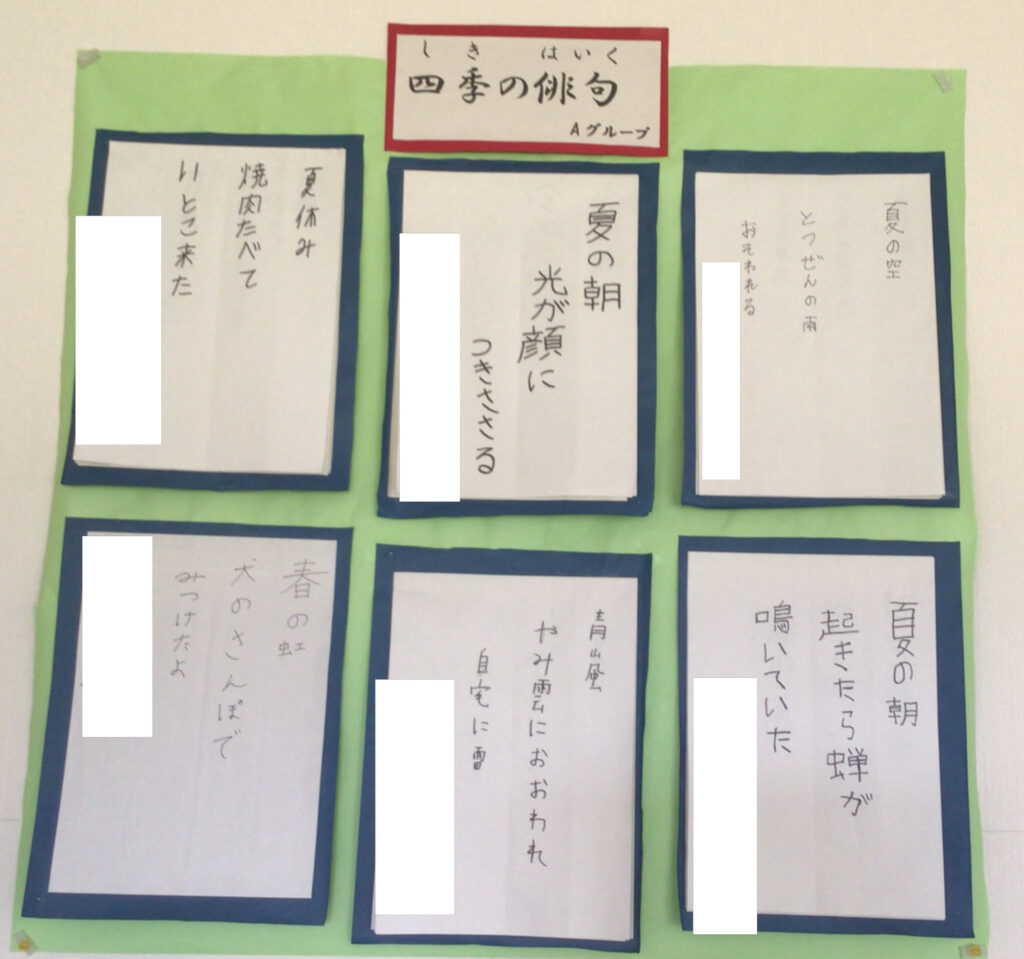 しき はいく
四季の俳句
Aグループ
夏の空
とつぜんの雨
おそわれる
夏の朝
光が顔に
つきささる
夏休み
焼肉たべて
いとこ来た
夏の朝
起きたら蝉が
鳴いていた
青山風
やみ雲におおわれ
自宅に雷
春の虹
犬のさんぽで
みつけたよ